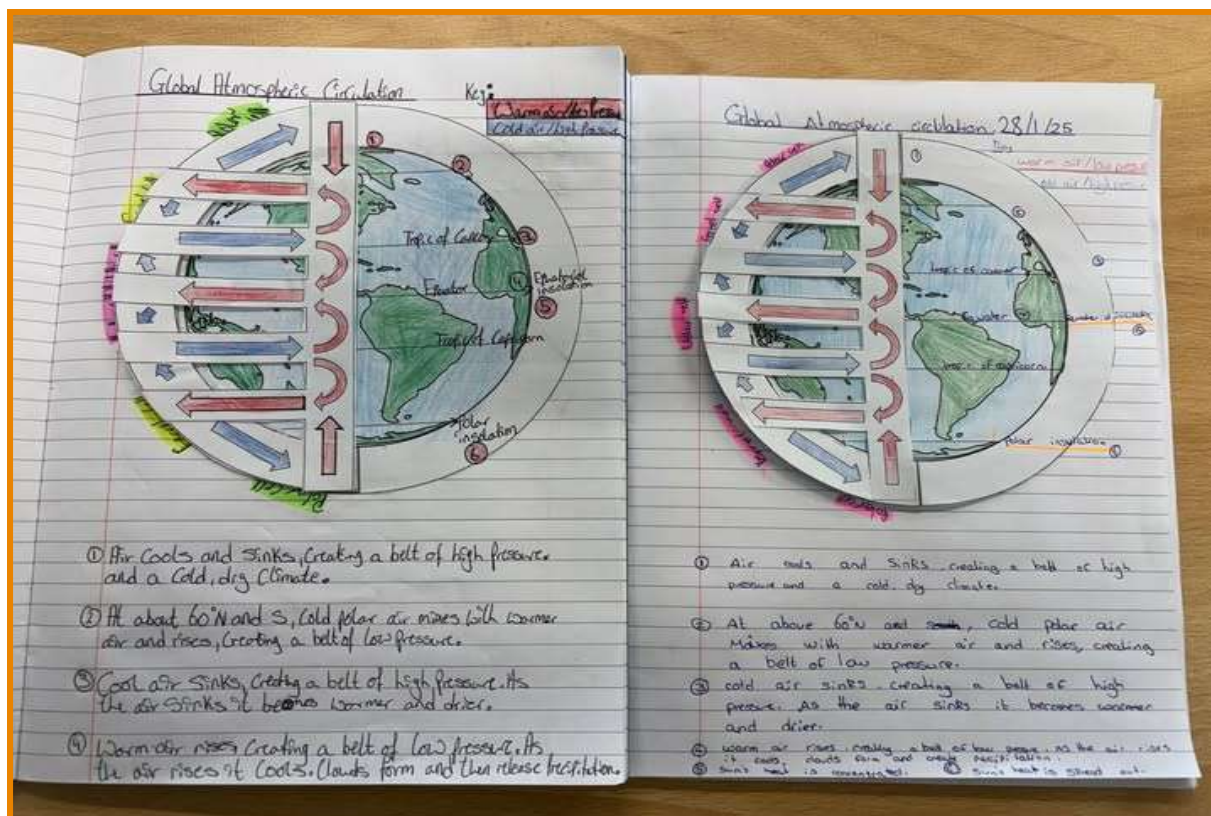 Global Atmospheric Circulation
Key:
Warm air/low Pressure
Cold air/high Pressure
Polar
Tropic of Cancer
③
②
①
④
Equatorial
insolation
⑤
Equator
Tropic of Capricorn
Polar
insolation
⑥
Polar cell
① Air Cools and Sinks, Creating a belt of high Pressure.
and a Cold, dry Climate.
② At about 60°N and S, Cold Polar air mixes with warmer
air and rises, Creating a belt of low Pressure.
③ Cool air Sinks, Creating a belt of high Pressure. As
the air Sinks it becomes warmer and drier.
④ Warm air rises, Creating a belt of low Pressure. As
the air rises it Cools. Clouds form and then release Precipitation.
Global Atmospheric circulation 28/1/25
Key
warm air/low
cold air/high
Polar cell
①
tropic of cancer
Equator
⑤
tropic of capricorn
Polar insolation
① Air cools and sinks, creating a belt of high
pressure and a cold, dry climate.
② At above 60°N and, cold polar air
with warmer air and rises, creating
a belt of low pressure.
③ cold air sinks, creating a belt of high
pressure. As the air sinks it becomes warmer
and drier.
④ warm air rises, creating a belt of low. As the air rises
it cools, clouds form and create precipitation.
⑤ Sun's heat is concentrated. ⑥ Sun's heat is spread out.